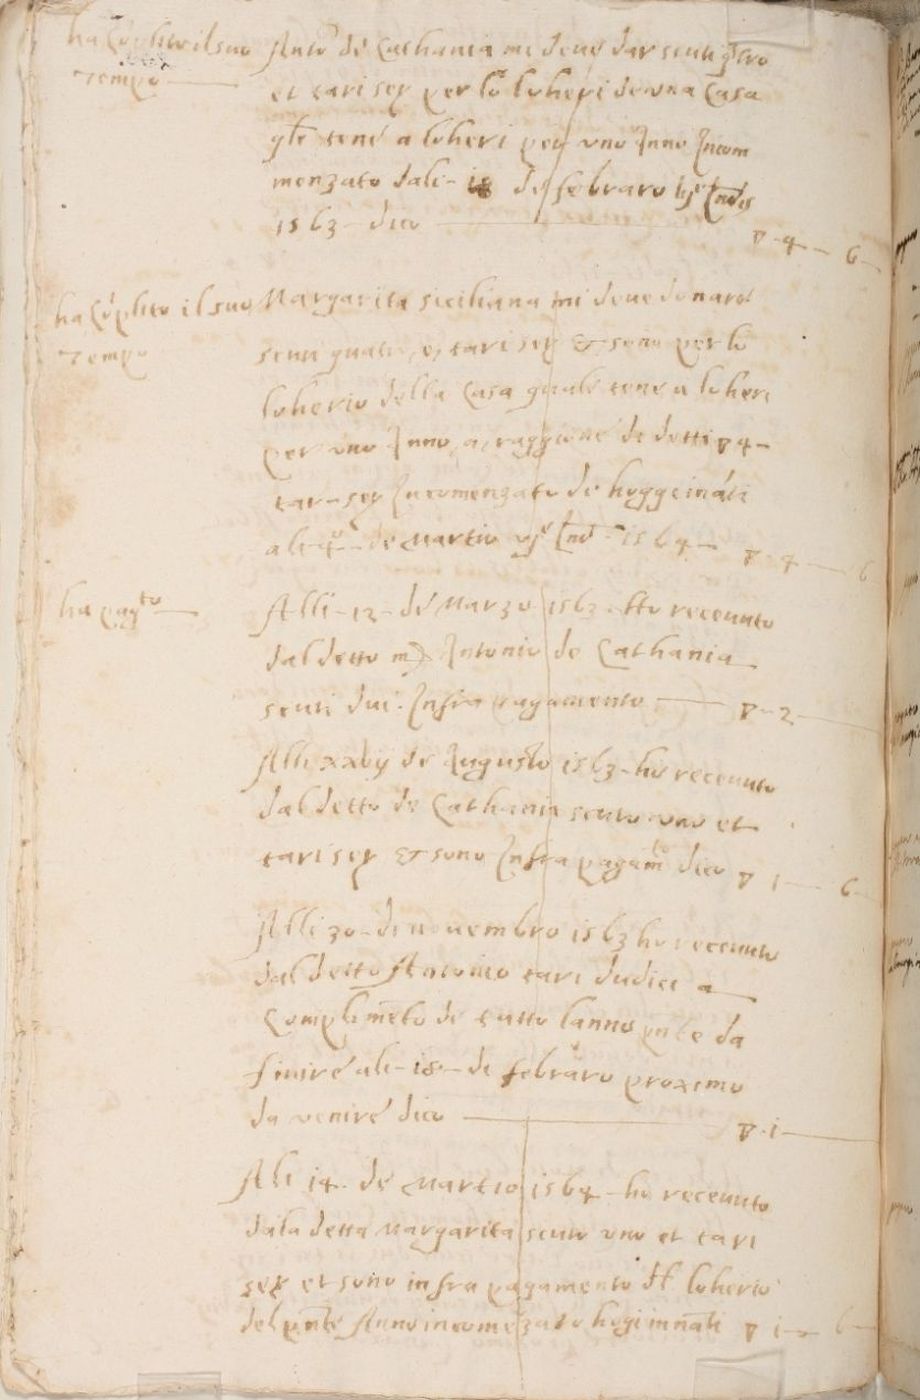 ha Co͞plito il suo
tempo
Anto de Cathania mi deve dar scuti q͞tro
et tari sey per lo loheri de una Casa
q͞le tene a loheri per uno Anno Incom
menzato dali - 18 de febraro vje Ind͞is
1563 - dico
4 - 6
ha Co͞plito il suo
tempo
Margarita siciliana mi deve donare
scuti quatro, et tari sey et sono per lo
loherio della Casa quale tene a loheri
per uno Anno, a, raggione de detti 4 -
tar - sey Incomenzato de hoggeina͞ti
ali de Martio vije Ind 1564 -
4 - 6
ha pagto
Alli - 12 - de Marzo 1563 - ho receuuto
dal detto m Antonio de Cathania
scuti dui Infra pagamento
2
Alli xxvij de Augusto 1563 - ho receuuto
dal detto de Cathania scuto uno et
tari sey et sono Infra pagam͞to dico
1 - 6
Alli 30 - di novembro 1563 ho receuuto
dal detto Antonio tari dudici a
Complim͞eto de tutto l'anno p͞nte da
finire ali - 18 - di febraro proximo
da venire dico
1
Ali 14 de Martio 1564 - ho receuuto
dala detta Margarita scuto uno et tari
sey et sono infra pagamento d͞l loherio
del p͞nte Anno income͞zato hogi inn͞ati
1 - 6